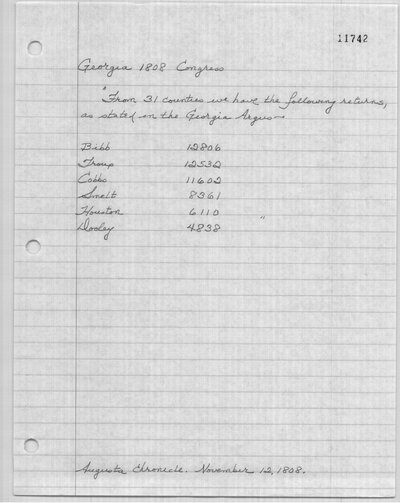 11742
Georgia 1808 Congress
"From 31 counties we have the following returns,
as stated in the Georgia Argus—
Bibb 12806
Troup 12532
Cobbs 11602
Smelt 8361
Houston 6110 "
Dooley 4838
Augusta Chronicle. November 12, 1808.